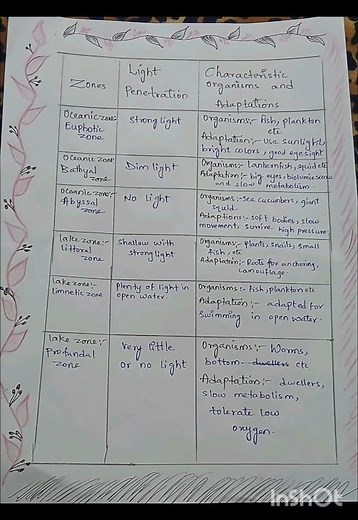 Zones
Light
Penetration
Characteristic
Organisms and
Adaptations
Oceanic zone:-
Euphotic
zone
Strong light
Organisms:- Fish, plankton
etc
Adaptation:- Use sunlight,
bright colors, good eye sight
Oceanic zone:-
Bathyal
zone
Dim light
Organisms:- Lanternfish, squid etc
Adaptation:- big eyes, bioluminescence
and slow metabolism
Oceanic zone:-
Abyssal
zone
No Light
Organisms:- Sea cucumbers, giant
squid.
Adaptions:- soft bodies, slow
movement, survive high pressure
lake zone:-
littoral
zone
Shallow with
strong light
Organisms:- plants, snails, small
fish, etc
Adaptation:- Roots for anchoring,
camouflage.
lake zone:-
limnetic zone
Plenty of light in
open water.
Organisms:- Fish, plankton etc
Adaptation:- adapted for
swimming in open water.
lake zone:-
Profundal
zone
Very little
or no light
Organisms:- Worms,
bottom dwellers etc
Adaptation:- dwellers,
slow metabolism,
tolerate low
oxygen.
InShOt